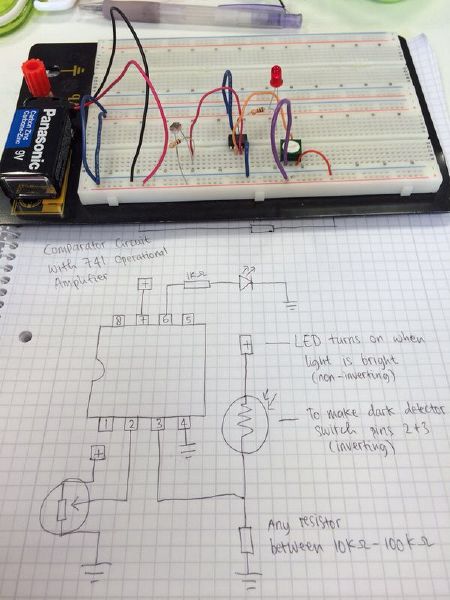 Panasonic
Carbon Zinc
9V
Comparator Circuit
with 741 Operational
Amplifier
+
1KΩ
8 7 6 5
1 2 3 4
+
+
LED turns on when
light is bright
(non-inverting)
To make dark detector
switch pins 2+3
(inverting)
Any resistor
between 10KΩ-100KΩ